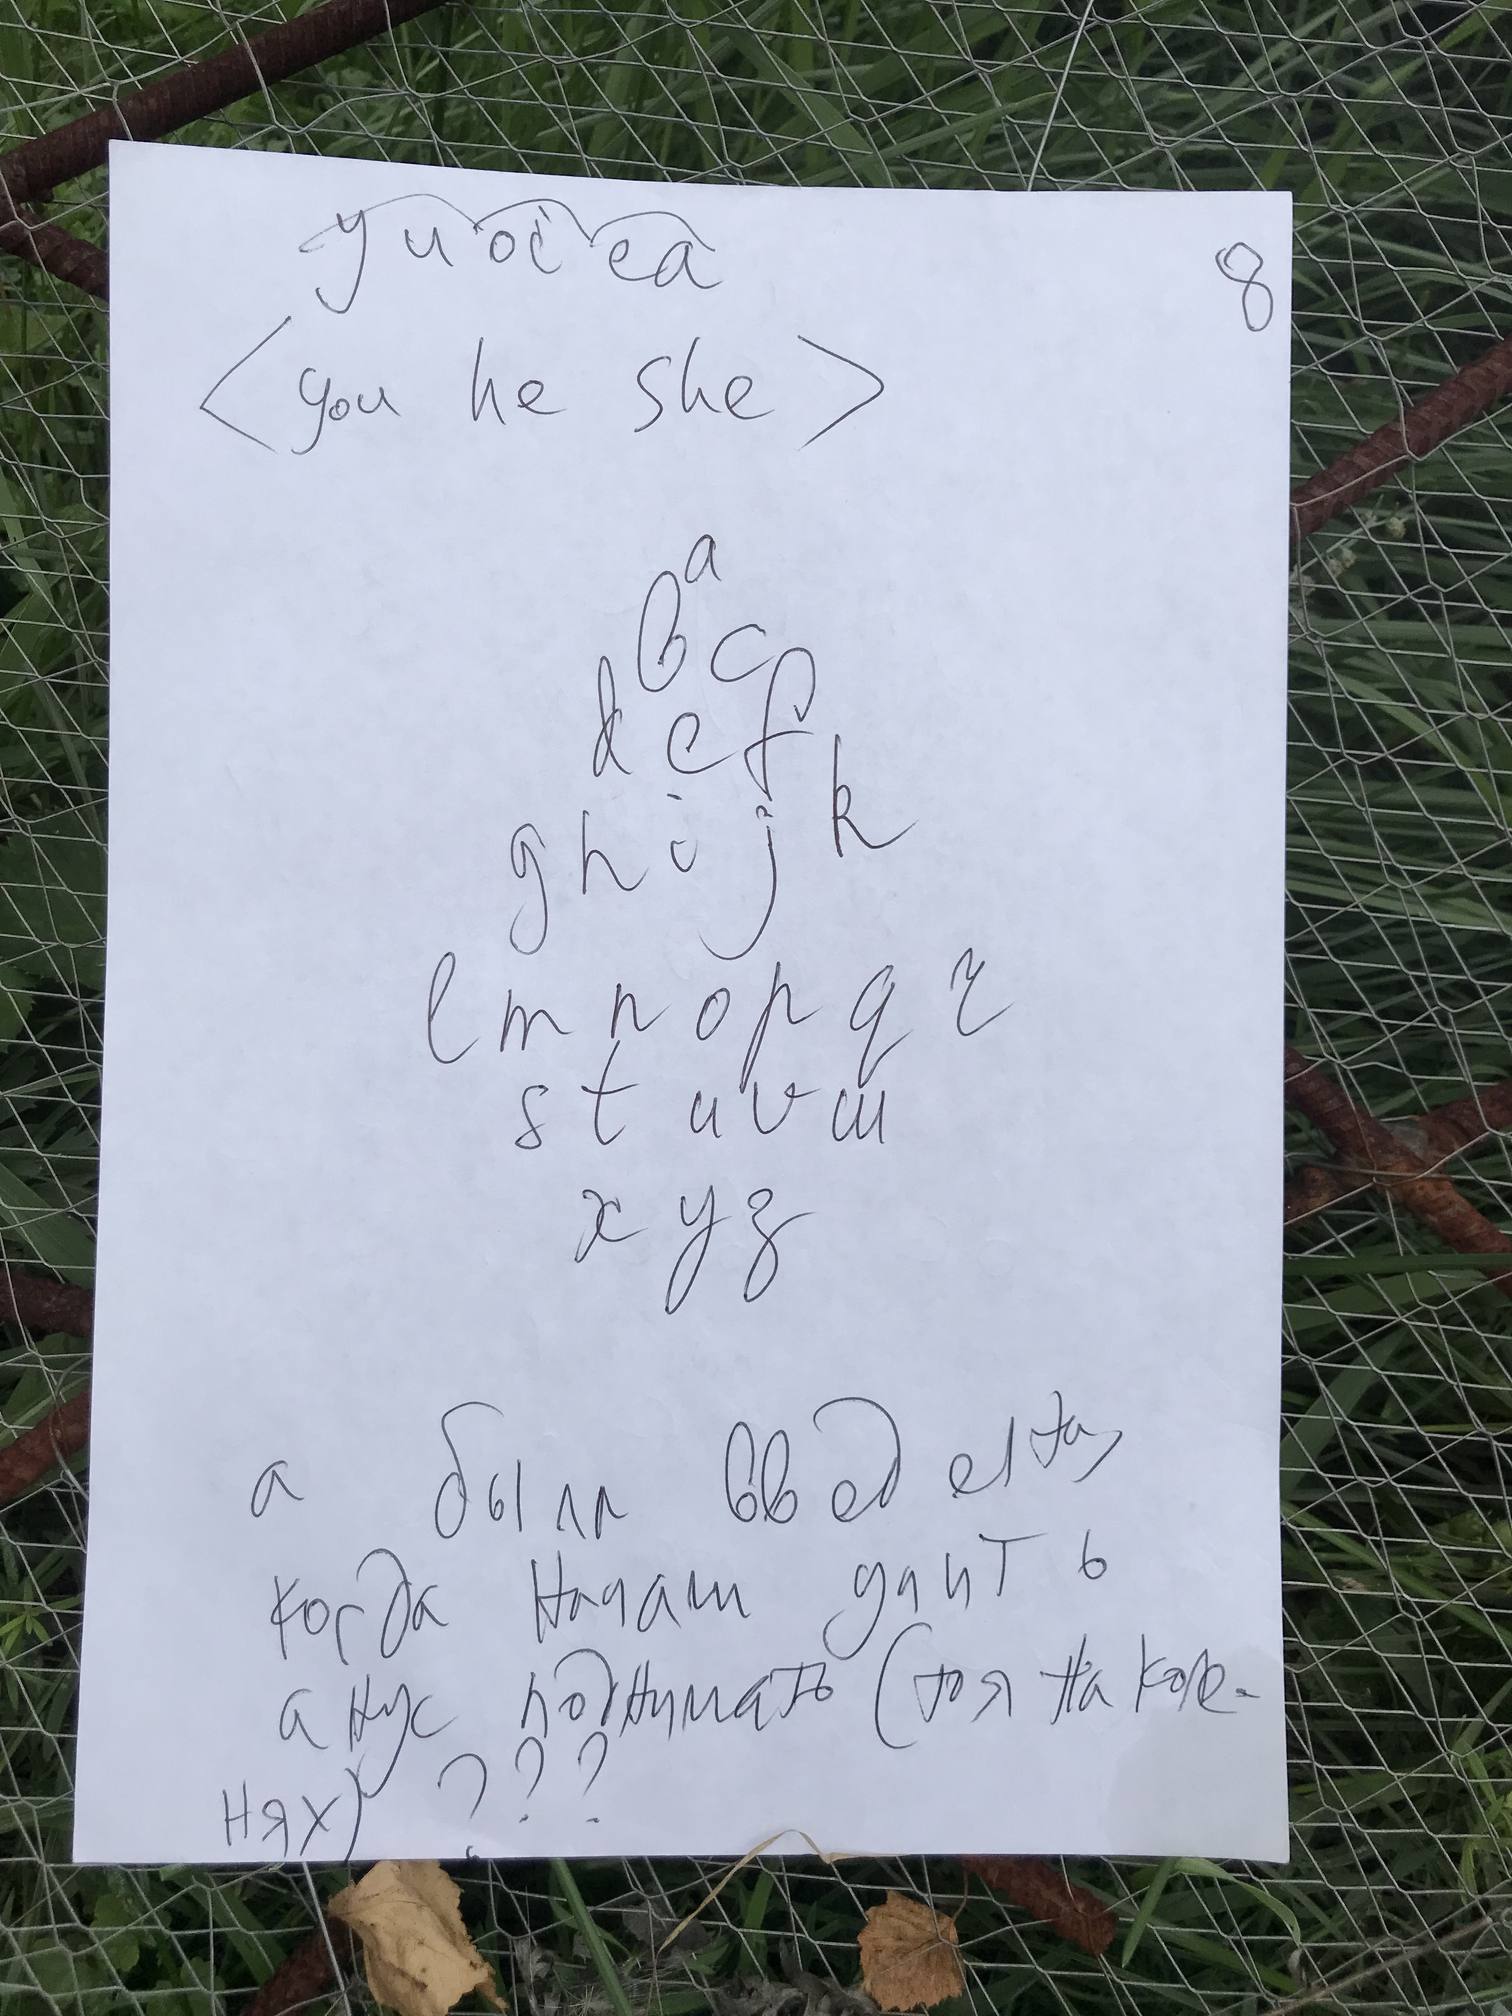 y u oi ea
8
<you he she>
a
b c
d e f
g h i j k
l m n o p q r
s t u v w
x y z
а были введены
когда начали
анус поднимать (стоя на коле-
нях) ???